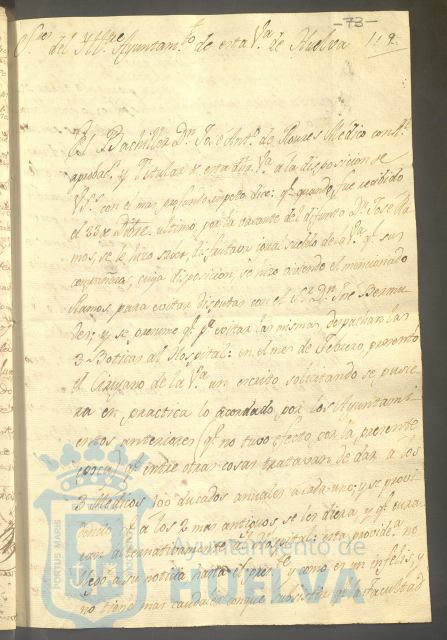 -73-
S.res del Ill.e Ayuntam.to de esta V.a de Huelva
119
El Bachiller D.n Jose Ant.o de Flores Medico con R.l
aprobac.n y Titular de esta dha V.a a la disposicion de
V.S.s con el mas profundo respeto dice: q.e quando fue recibido
el 23 de Dibre ultimo, por la vacante del difunto D.n Jose Ra
mos, se le hizo saver, disfrutaria igual sueldo de la V.a q.e sus
compañeros, cuya disposicion, se hizo viviendo el mencionado
Ramos, para evitar disputas con el S.r D.n Jose Bermu
dez; y se previene q.e p.a evitar las mismas, despachan las
3 Boticas al Hospital: en el mes de Febrero, presento
el Cirujano de la V.a un escrito solicitando se pusie
ra en practica lo acordado por los Ayuntami
entos anteriores q.e no tuvo efecto con la presente
q.e entre otras cosas trataron de dar a los
3 Medicos 300 ducados anuales a cada uno; y se provi
denció q.e a los 2 mas antiguos se les diera, y q.e cura
ran alternativam.te el Hospital: esta provid.a no
llegó a su noticia hasta el pres.te y como es un infeliz, y
no tiene mas caudales conque subsistir q.e la facultad
Ayuntamiento de
HUELVA
PORTUS MARIS